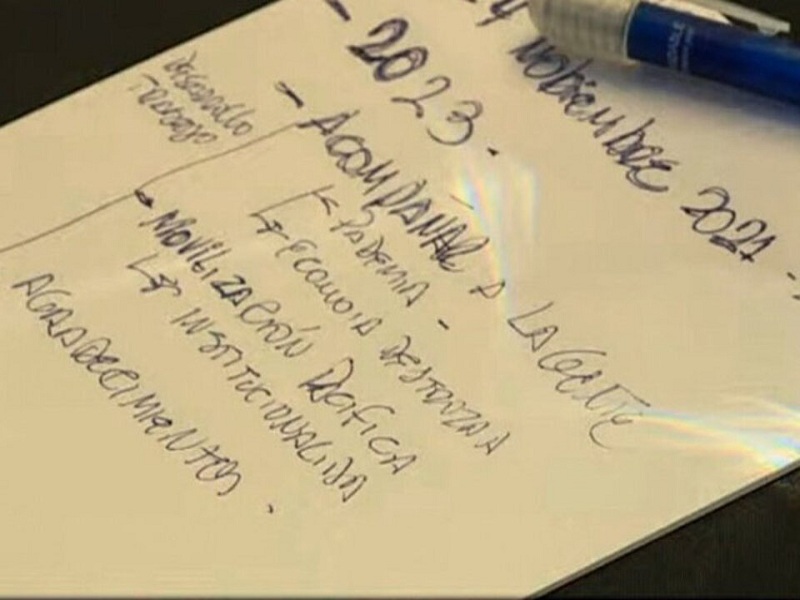 - 4 NOBIEMBRE 2021.
- 2023.
DESARROLLO
TRABAJO
- ACOMPAÑAR A LA GENTE
PADEMIA -
ECONOIA DESTRUZA
MOVILIZACIÓN PACIFICA
INSTITUCIONALIDA
AGRADECIMIENTOS.